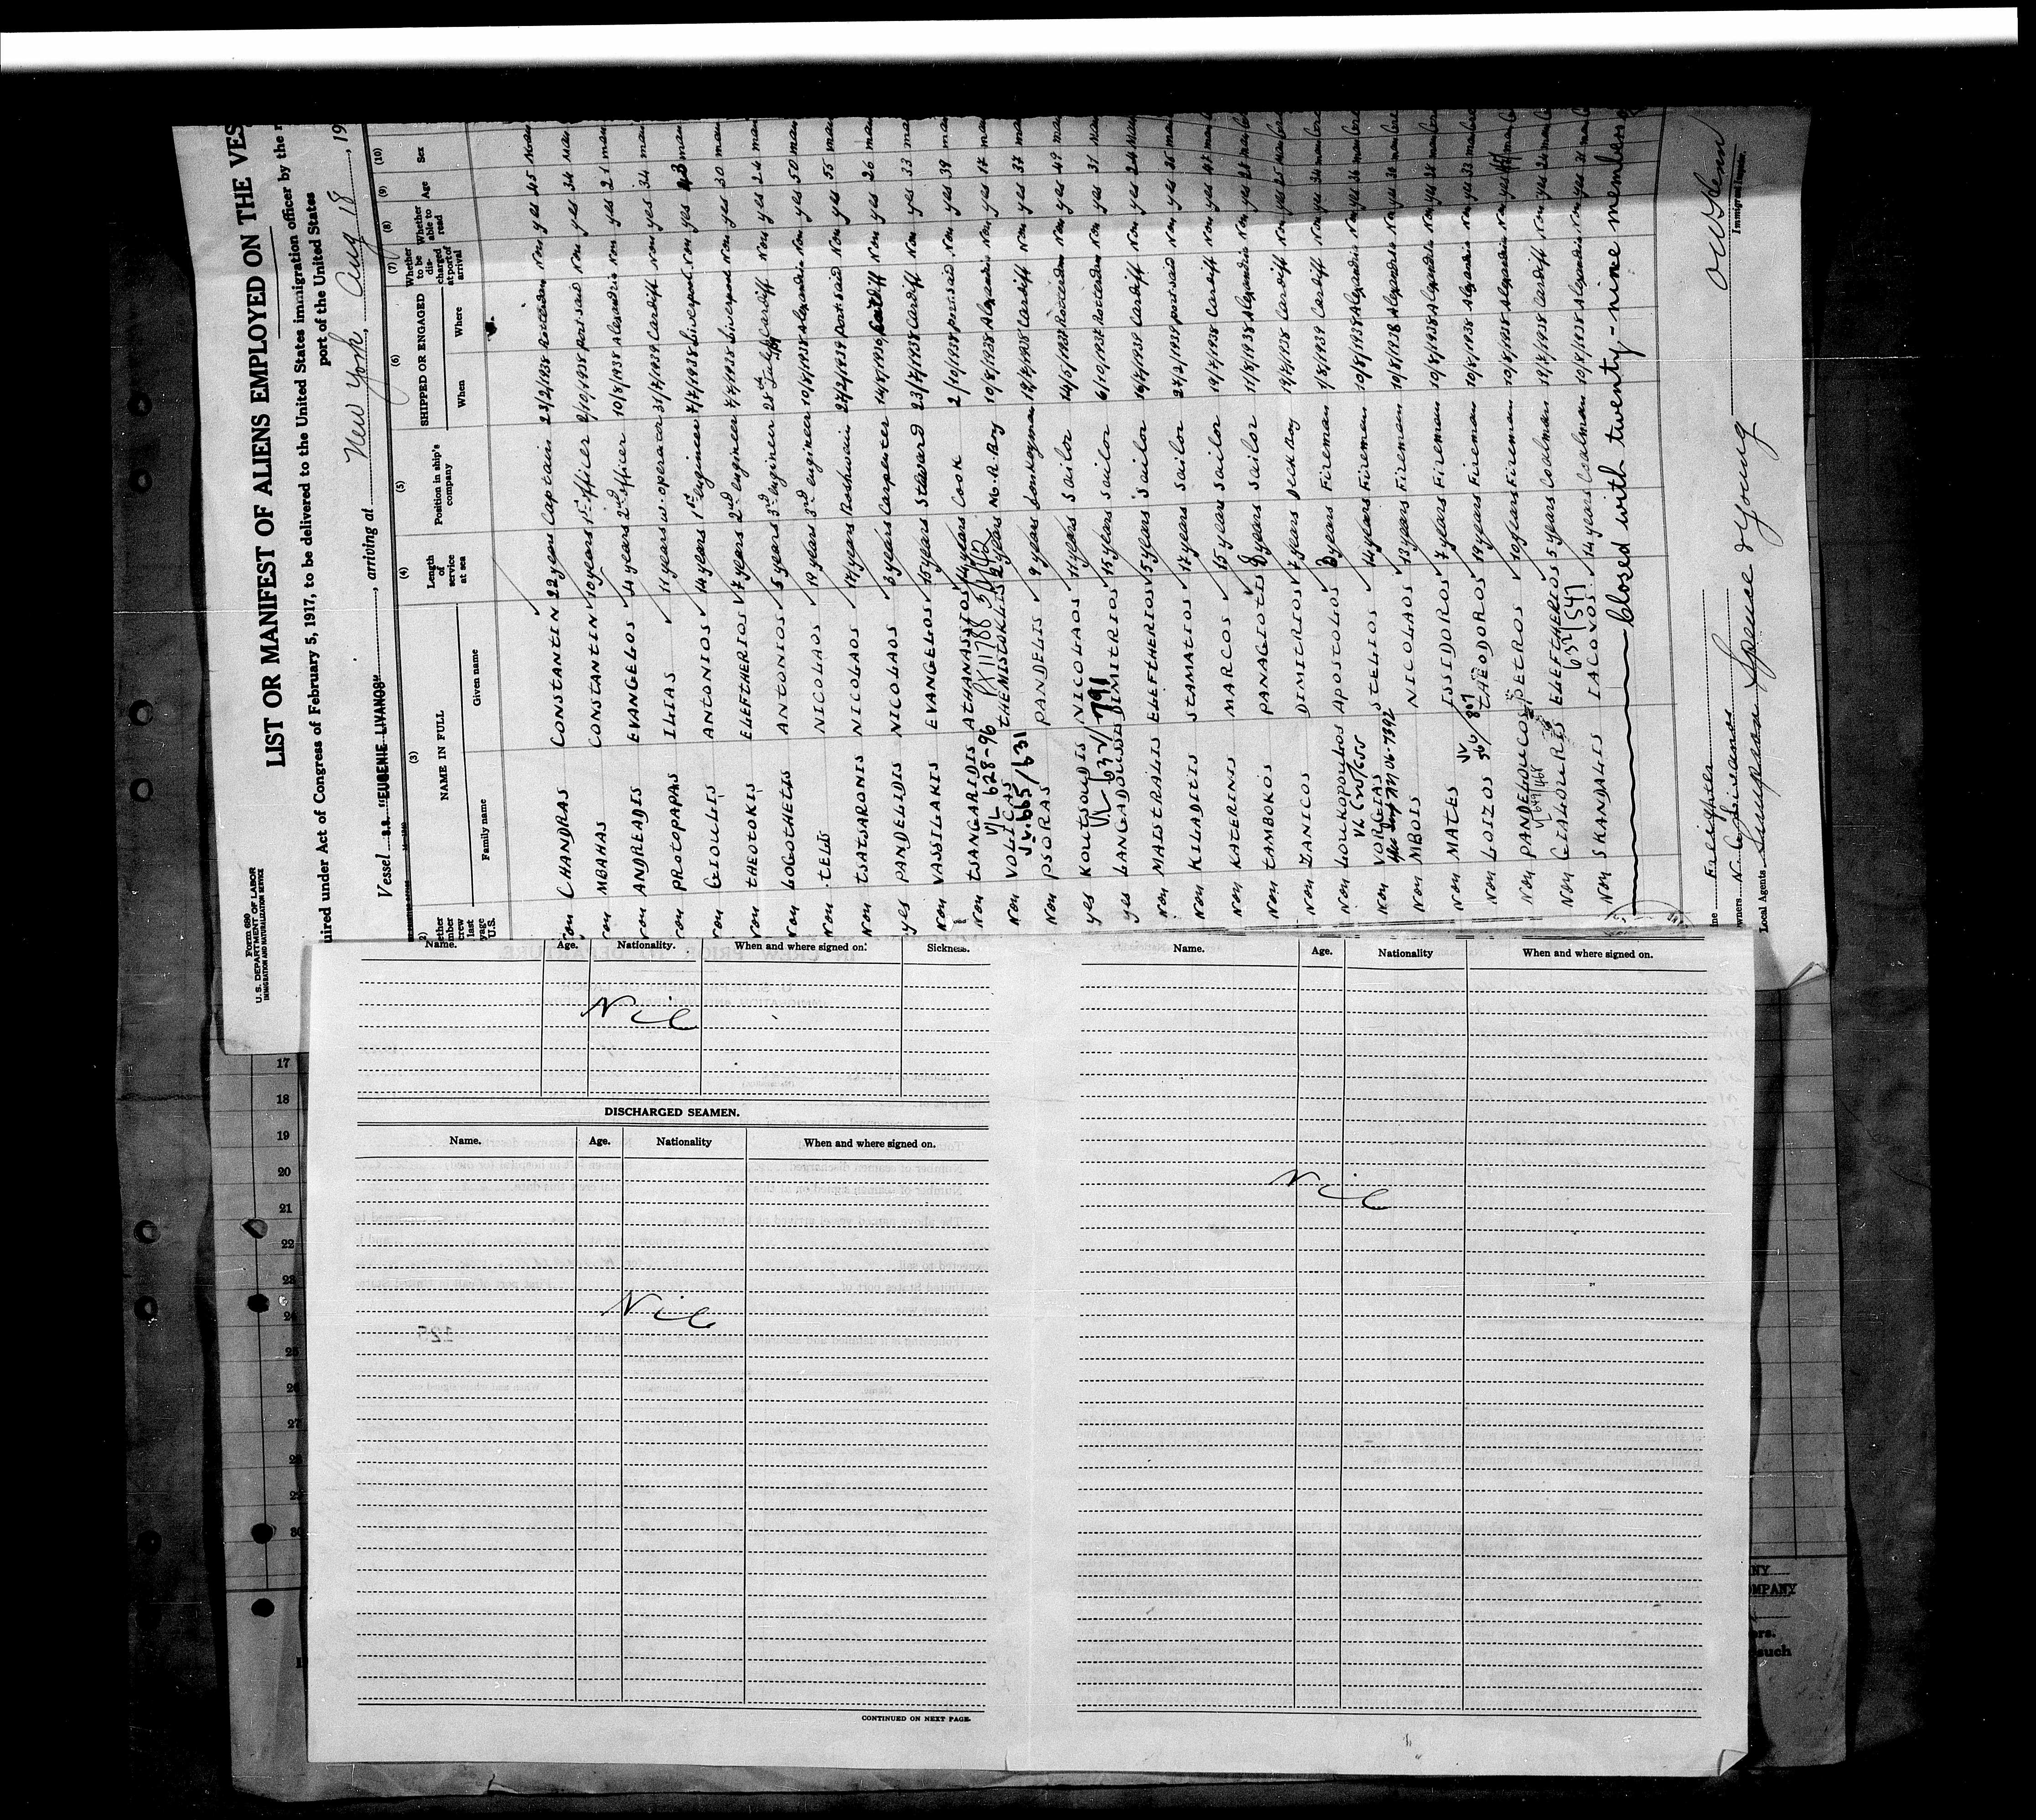 Form 680
U. S. DEPARTMENT OF LABOR
IMMIGRATION AND NATURALIZATION SERVICE
LIST OR MANIFEST OF ALIENS EMPLOYED ON THE VES
uired under Act of Congress of February 5, 1917, to be delivered to the United States immigration officer by the r
port of the United States
Vessel S.S. "EUGENIE LIVANOS", arriving at New York, Aug 18, 19
(3) (4) (5) (6) (7) (8) (9) (10)
NAME IN FULL
Family name Given name
Length of service at sea
Position in ship's company
SHIPPED OR ENGAGED
When Where
Whether to be discharged at port of arrival
Whether able to read
Age Sex
Non CHANDRAS CONSTANTIN 22 years Captain 23/2/1938 Rotterdam Non yes 45 man
Non MBAHAS CONSTANTIN 10 years 1st officer 2/10/1938 Port said Non yes 34 man
Non ANDREADIS EVANGELOS 4 years 2nd officer 10/8/1938 Alexandria Non yes 21 man
Non PROTOPAPAS ILIAS 11 years w. operator 31/7/1939 Cardiff Non yes 34 man
Non GIOULIS ANTONIOS 14 years 1st engineer 7/7/1938 Liverpool Non yes 43 man
Non THEOTOKIS ELEFTHERIOS 7 years 2nd engineer 7/7/1938 Liverpool Non yes 30 man
Non LOGOTHETIS ANTONIOS 5 years 3rd engineer 28th July Cardiff Non yes 24 man
Non TELIS NICOLAOS 19 years 3rd engineer 10/8/1938 Alexandria Non yes 50 man
Non TSATSARONIS NICOLAOS 17 years 27/2/1939 Port said Non yes 55 man
yes PANDELIDIS NICOLAOS 3 years Carpenter 14/8/1936 Cardiff Non yes 26 man
Non VASSILAKIS EVANGELOS 15 years Steward 23/7/1938 Cardiff Non yes 33 man
Non TSANGARIDIS ATHANASSIOS 14 years Cook 2/10/1938 port said Non yes 39 man
V/L 628-96
Non VOLICAS THEMISTOKLIS 2 years M.R. Boy 10/8/1938 Alexandria Non yes 17 man
Non PSORAS PANDELIS 9 years Donkeyman 19/7/1938 Cardiff Non yes 37 man
yes KOUTSOUDIS NICOLAOS 11 years Sailor 14/5/1937 Rotterdam Non yes 49 man
VL 632/791
yes LANGADOUSIS DIMITRIOS 15 years Sailor 6/10/1937 Rotterdam Non yes 31 man
Non MAISTRALIS ELEFTHERIOS 5 years Sailor 16/7/1939 Cardiff Non yes 24 man
Non KILADITIS STAMATIOS 17 years Sailor 27/2/1939 port said Non yes 36 man
Non KATERINIS MARCOS 15 years Sailor 19/7/1938 Cardiff Non yes 47 man
Non TAMBOKOS PANAGIOTIS 8 years Sailor 11/8/1938 Alexandria Non yes 28 man
Non ZANICOS DIMITRIOS 7 years Deck Boy 19/7/1938 Cardiff Non yes 25 man
Non LOUKOPOULOS APOSTOLOS years Fireman 1/8/1939 Cardiff Non yes 34 man
VL 625/655
Non VORGIAS STELIOS 14 years Fireman 10/8/1938 Alexandria Non yes 36 man
Non MBOIS NICOLAOS 13 years Fireman 10/8/1938 Alexandria Non yes 30 man
Non MATES ISSIDOROS 7 years Fireman 10/8/1938 Alexandria Non yes 34 man
Non LOIZOS THEODOROS 19 years Fireman 10/8/1938 Alexandria Non yes 33 man
Non PANDELOUCOS PETROS 10 years Fireman 10/8/1938 Alexandria Non yes man
Non GIALOURIS ELEFTHERIOS 5 years Coalman 19/7/1938 Cardiff Non yes 24 man
632/547
Non SKANDALIS IACOVOS 14 years Coalman 10/8/1938 Alexandria Non yes 31 man
Closed with twenty-nine members
Freighter
Local Agents Simpson Spence & Young
Immigrant Inspector.
Name. Age. Nationality. When and where signed on. Sickness.
Nil
DISCHARGED SEAMEN.
Name. Age. Nationality When and where signed on.
Nil
CONTINUED ON NEXT PAGE.
Name. Age. Nationality When and where signed on.
Nil
17
18
19
20
21
22
23
24
25
26
27
28
29
30
NY
OMPANY
ers.
such